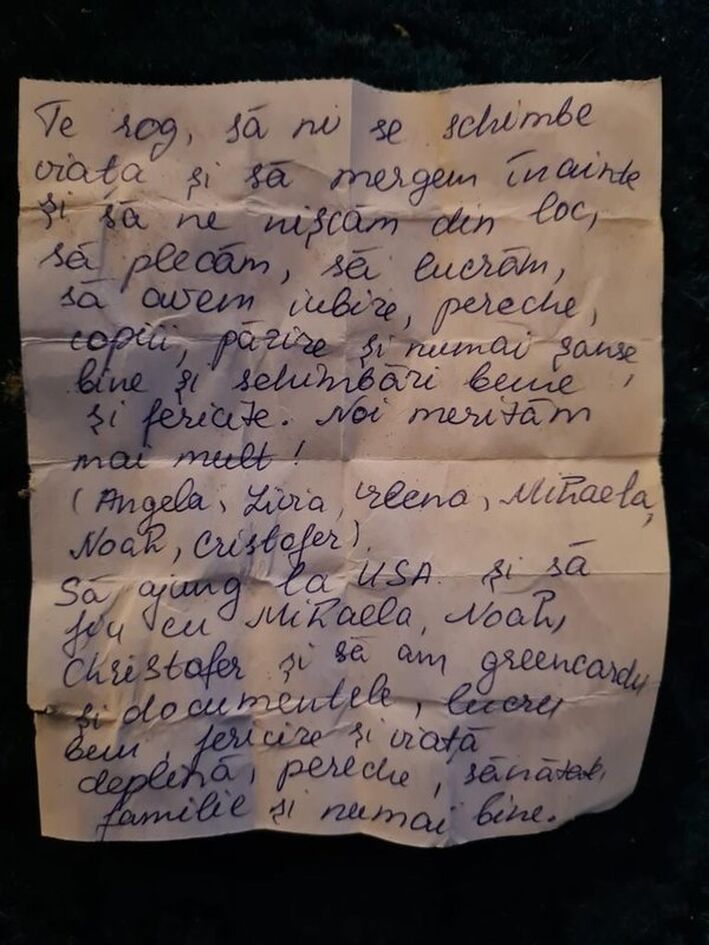 Te rog, să ni se schimbe
viața și să mergem înainte
și să ne mișcăm din loc,
să plecăm, să lucrăm,
să avem iubire, pereche,
copiii, și numai șanse,
bine și schimbări bune
și fericite. Noi merităm
mai mult!
(Angela, Livia, Elena, MiHaela,
NoaH, Cristofer).
Să ajung la USA și să
fiu cu MiHaela, NoaH,
Christofer și să am greencardu
și documentele, lucru
bun, fericire și viață
deplină, pereche, sănătate,
familie și numai bine.